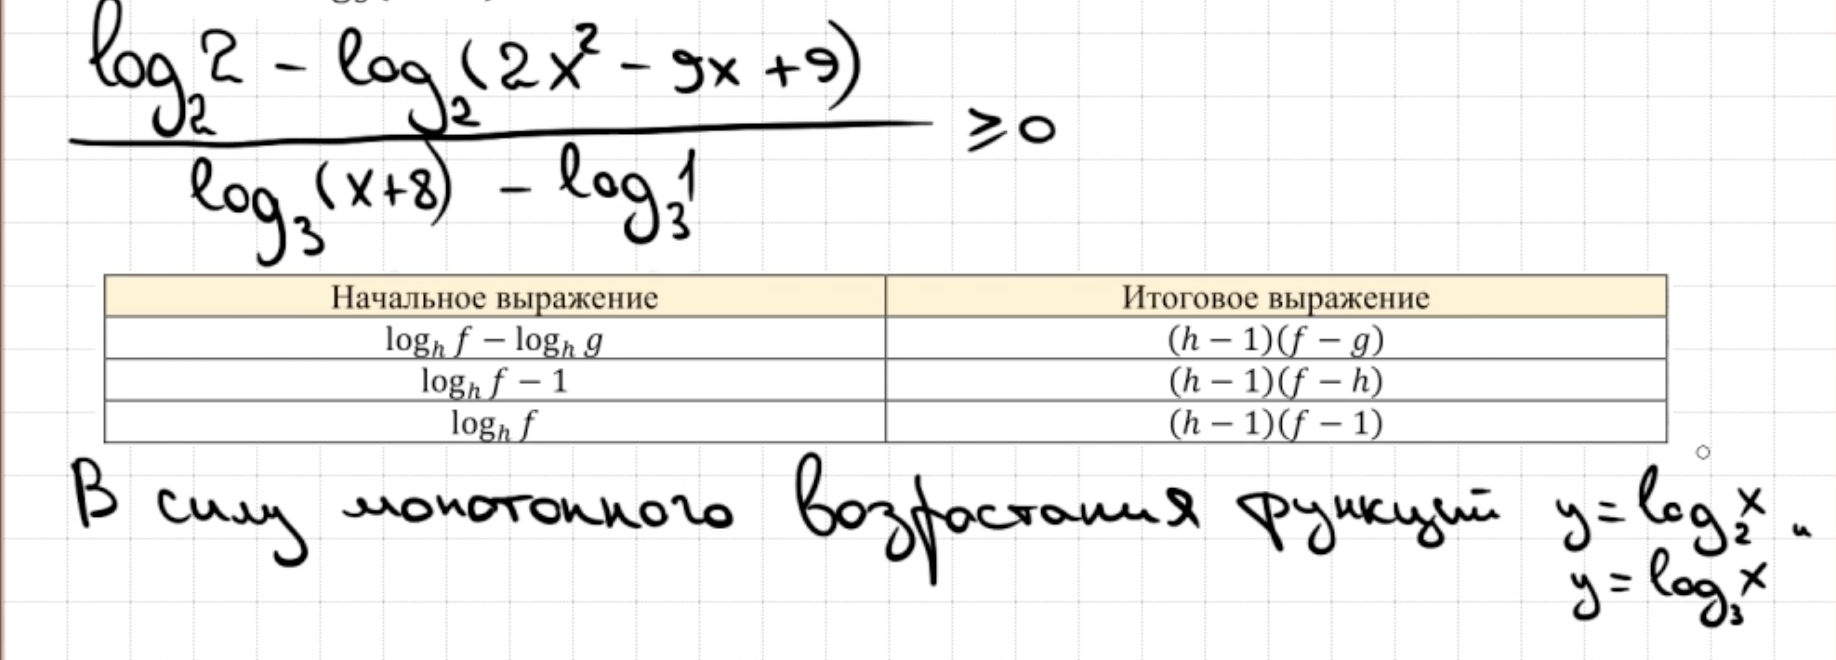 log₂2 - log₂(2x² - 9x + 9)
log₃(x+8) - log₃1
≥0
Начальное выражение Итоговое выражение
logₕ f − logₕ g (h − 1)(f − g)
logₕ f − 1 (h − 1)(f − h)
logₕ f (h − 1)(f − 1)
В силу монотонного возрастания функций y = log₂x и
y = log₃x